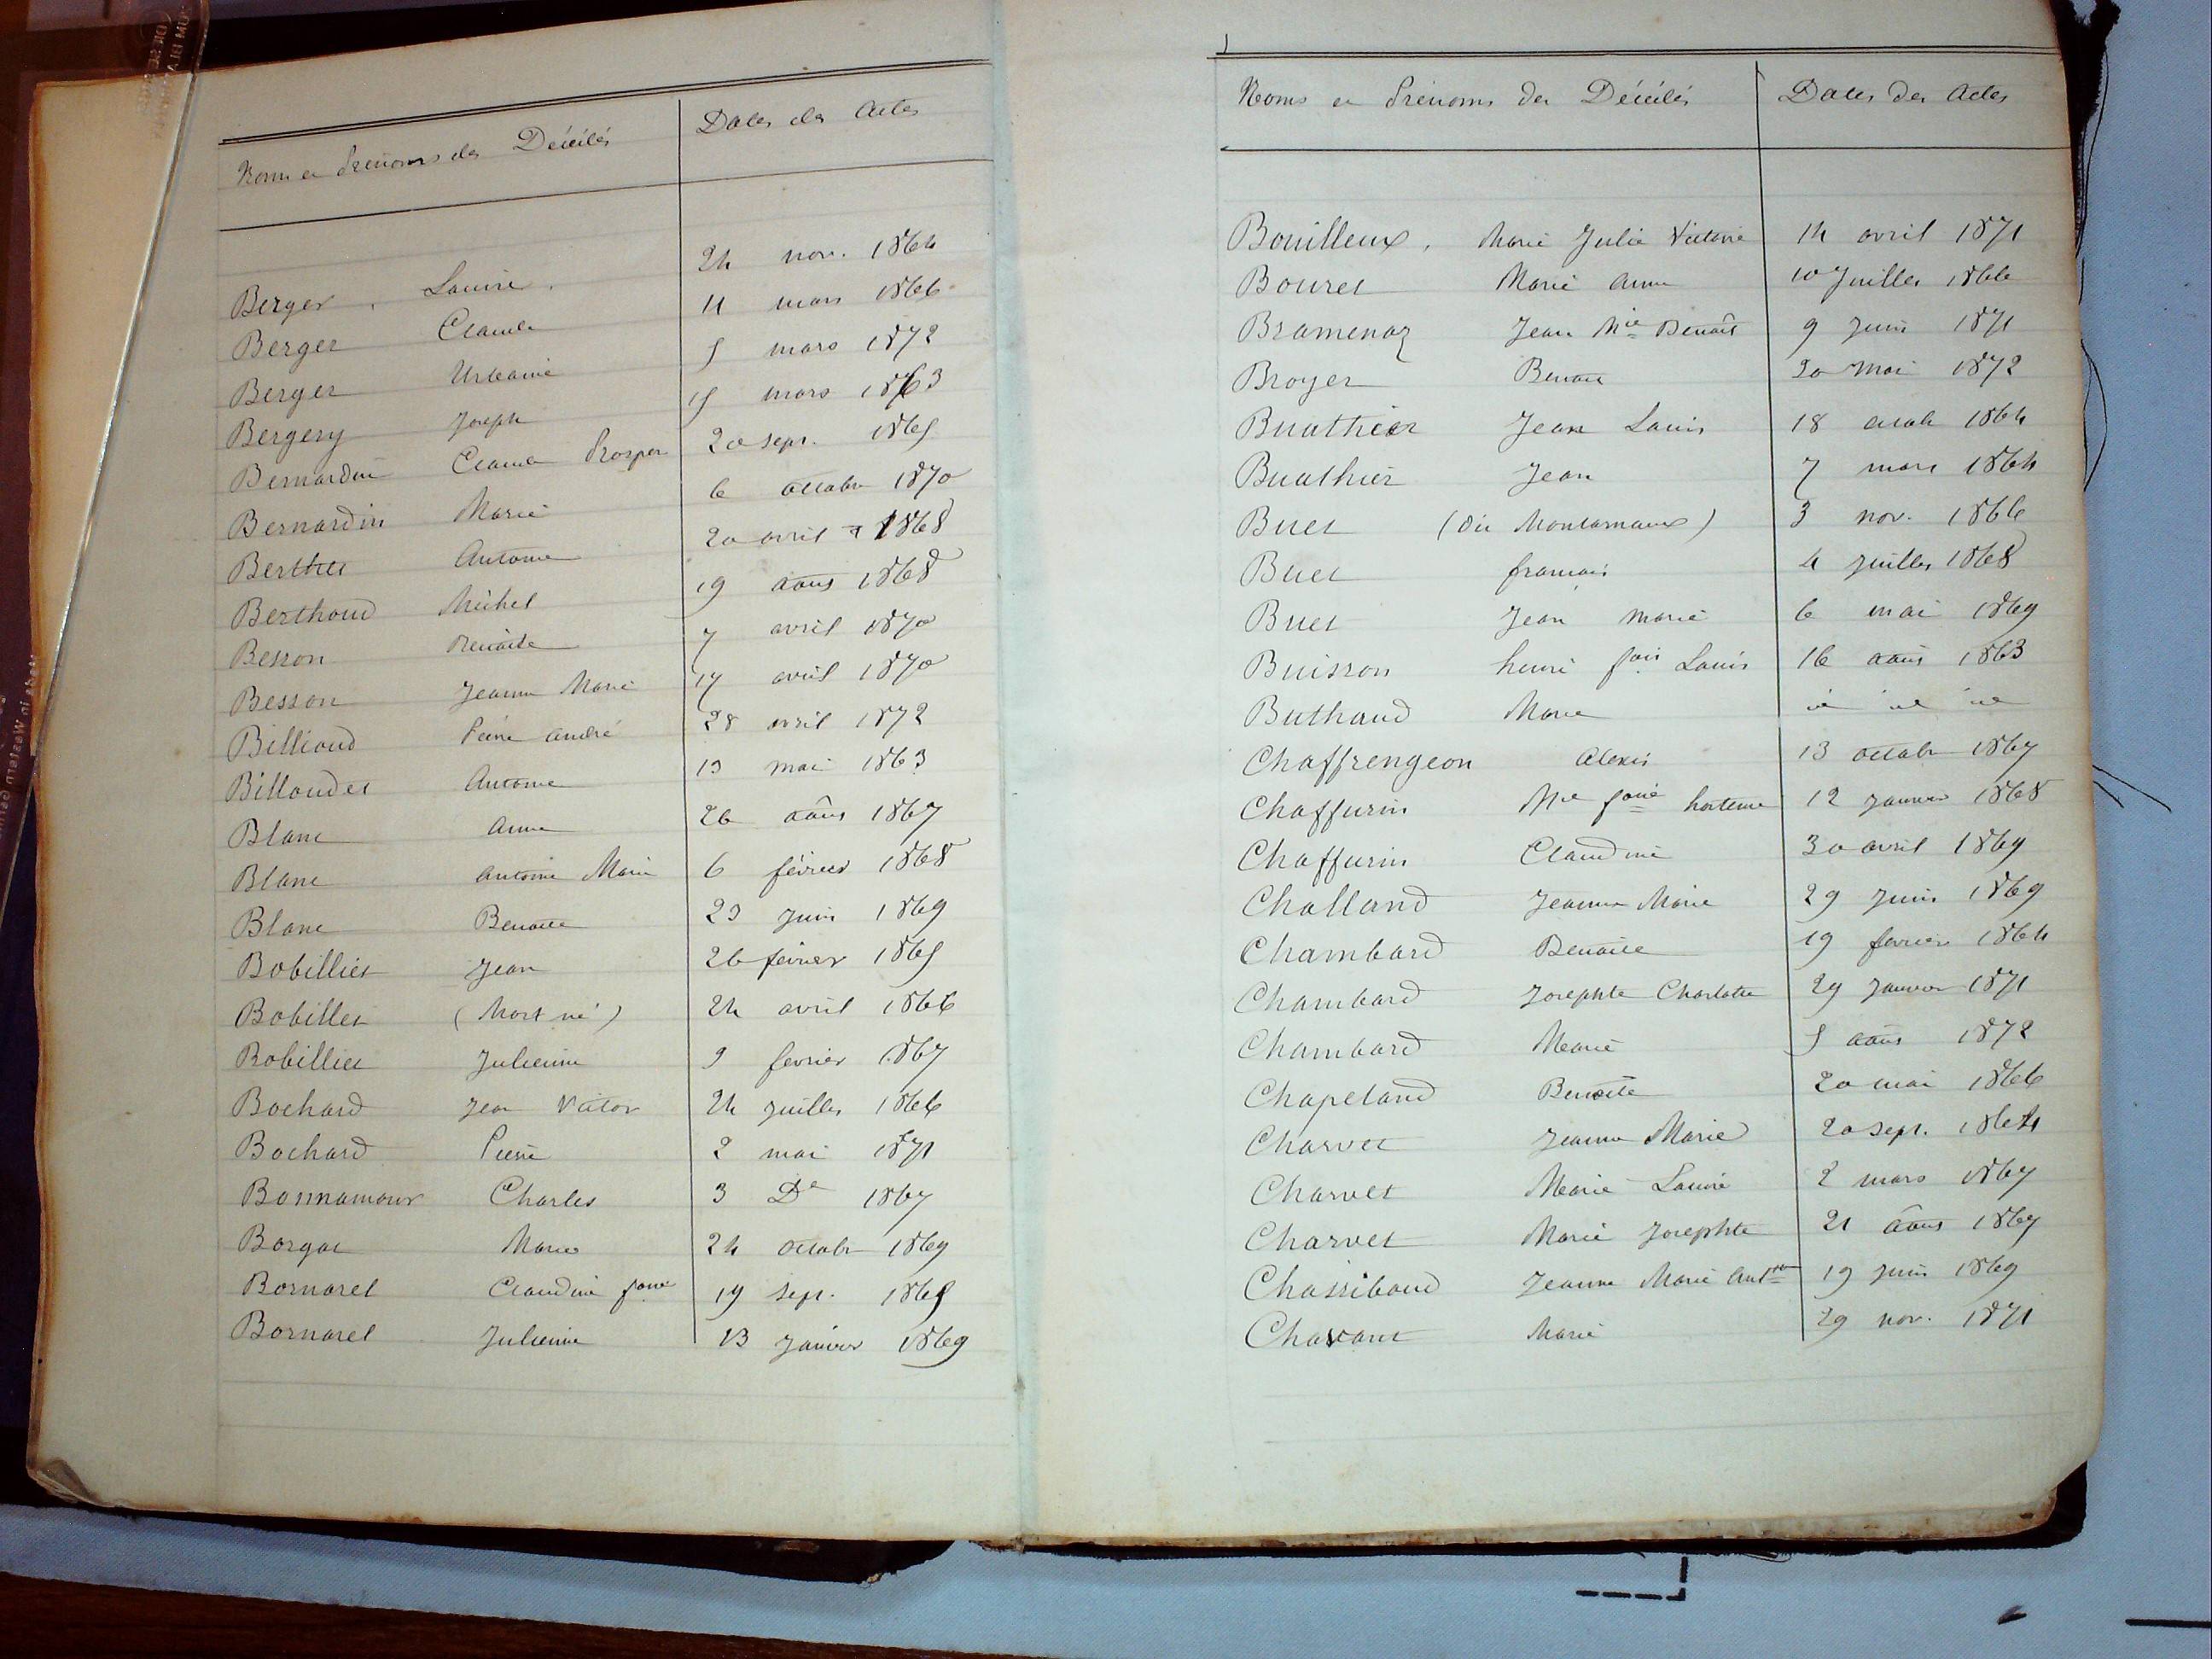 Noms et Prénoms des Décédés | Dates des Actes
Berger, Louise. 24 nov. 1864
Berger Claude 11 mars 1866
Berger Urbaine 5 mars 1872
Bergery Joseph 15 mars 1863
Bernardin Claude Prosper 20 sept. 1865
Bernardin Marie 6 octobre 1870
Berthet Antoine 20 avril 1868
Berthoud Michel 19 août 1868
Besson Benoite 7 avril 1870
Besson Jeanne Marie 17 avril 1870
Billioud Pierre André 28 avril 1872
Billoudet Antoine 13 mai 1863
Blanc Anne 26 août 1867
Blanc Antoine Marie 6 février 1868
Blanc Benoite 23 juin 1869
Bobilliet Jean 26 février 1865
Bobillet (Mort né) 24 avril 1866
Bobilliet Julienne 9 février 1867
Bochard Jean Victor 24 juillet 1866
Bochard Pierre 2 mai 1871
Bonnamour Charles 3 Dre 1867
Borgat Marie 24 octobre 1869
Bornarel Claudine foise 19 sept. 1865
Bornarel Julienne 13 janvier 1869
Noms et Prénoms des Décédés | Dates des Actes
Bouilleux, Marie Julie Victorie 14 avril 1871
Bouret Marie Anne 10 Juillet 1866
Bramenaz Jean Mie Benoît 9 juin 1871
Broyer Benoit 20 mai 1872
Buathier Jean Louis 18 octob 1864
Buathier Jean 7 mars 1864
Buet (dit Montarnaux) 3 nov. 1866
Buet françois 4 juillet 1868
Buet Jean Marie 6 mai 1869
Buisson henri fois Louis 16 août 1863
Buthaud Marie id id id
Chaffrengeon Alexis 13 octobr 1867
Chaffurin Mie foise hortense 12 janvier 1868
Chaffurin Claudine 30 avril 1869
Challand Jeanne Marie 29 juin 1869
Chambard Benoite 19 février 1864
Chambard Josephte Charlotte 29 janvier 1871
Chambard Marie 5 août 1872
Chapeland Benoite 20 mai 1866
Charvet Jeanne Marie 20 sept. 1864
Charvet Marie Louise 2 mars 1867
Charvet Marie Josephte 21 août 1867
Chassiboud Jeanne Marie Antte 19 juin 1869
Chavant Marie 29 nov. 1871